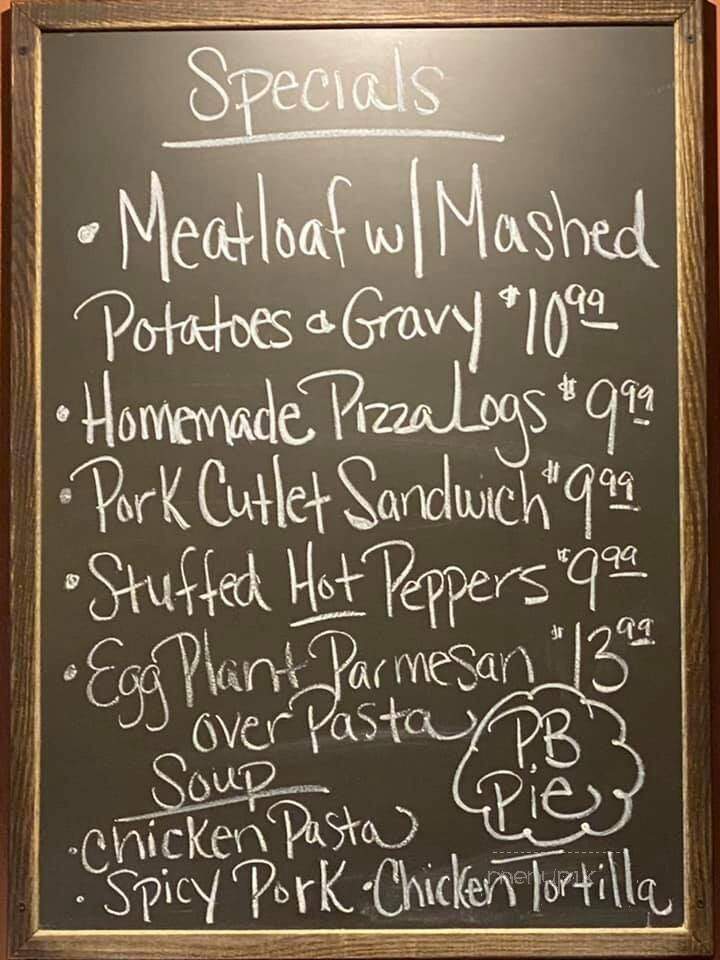 Specials
• Meatloaf w/ Mashed
Potatoes & Gravy $10.99
• Homemade Pizza Logs $9.99
• Pork Cutlet Sandwich $9.99
• Stuffed Hot Peppers $9.99
• Egg Plant Parmesan $13.99
over Pasta
PB
Pie
Soup
• Chicken Pasta
• Spicy Pork • Chicken Tortilla
menupix